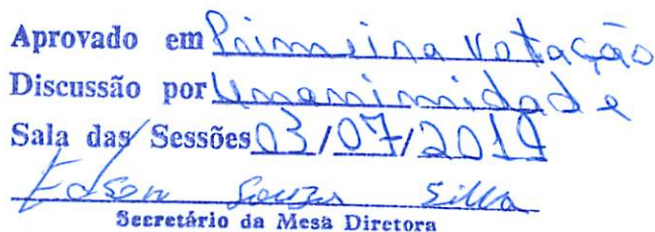 Aprovado em Primeira Votação
Discussão por Unanimidade
Sala das Sessões 03/07/2019
Edson Souza Silva
Secretário da Mesa Diretora